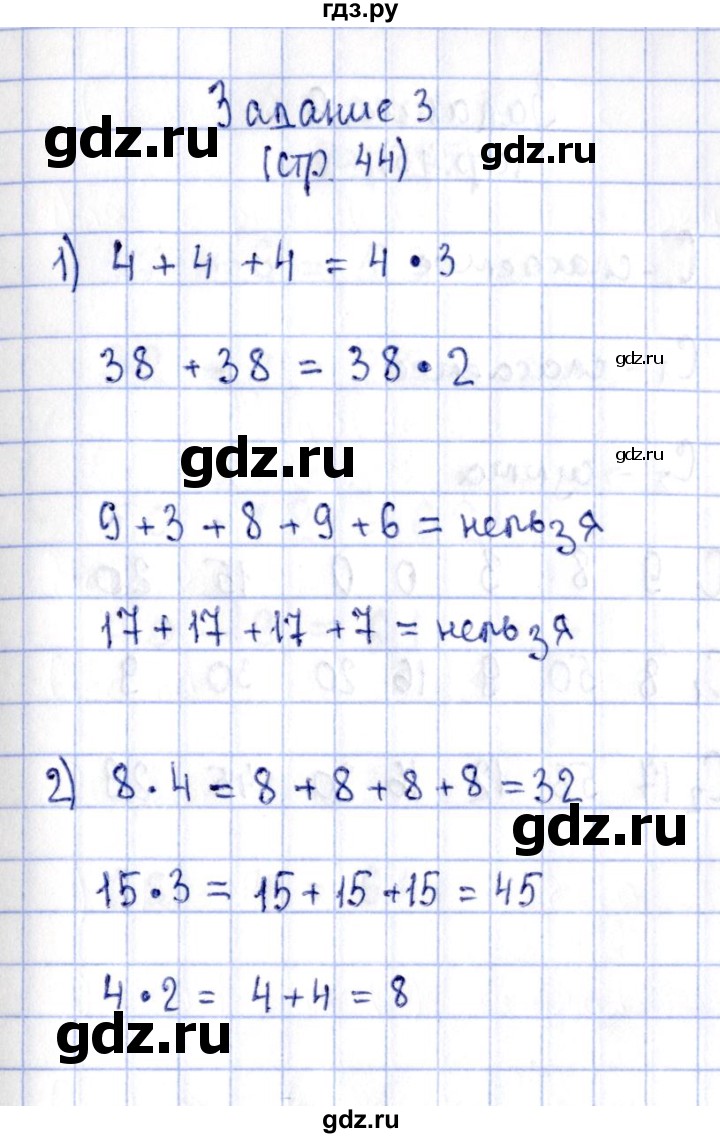 гдз.ру
Задание 3
gdz.ru
gdz.ru
(стр. 44)
1) 4 + 4 + 4 = 4 • 3
38 + 38 = 38 • 2
gdz.ru
gdz.ru
gdz.ru
9 + 3 + 8 + 9 + 6 = нельзя
17 + 17 + 17 + 7 = нельзя
2) 8 • 4 = 8 + 8 + 8 + 8 = 32
gdz.ru
15 • 3 = 15 + 15 + 15 = 45
4 • 2 = 4 + 4 = 8
gdz.ru
gdz.ru